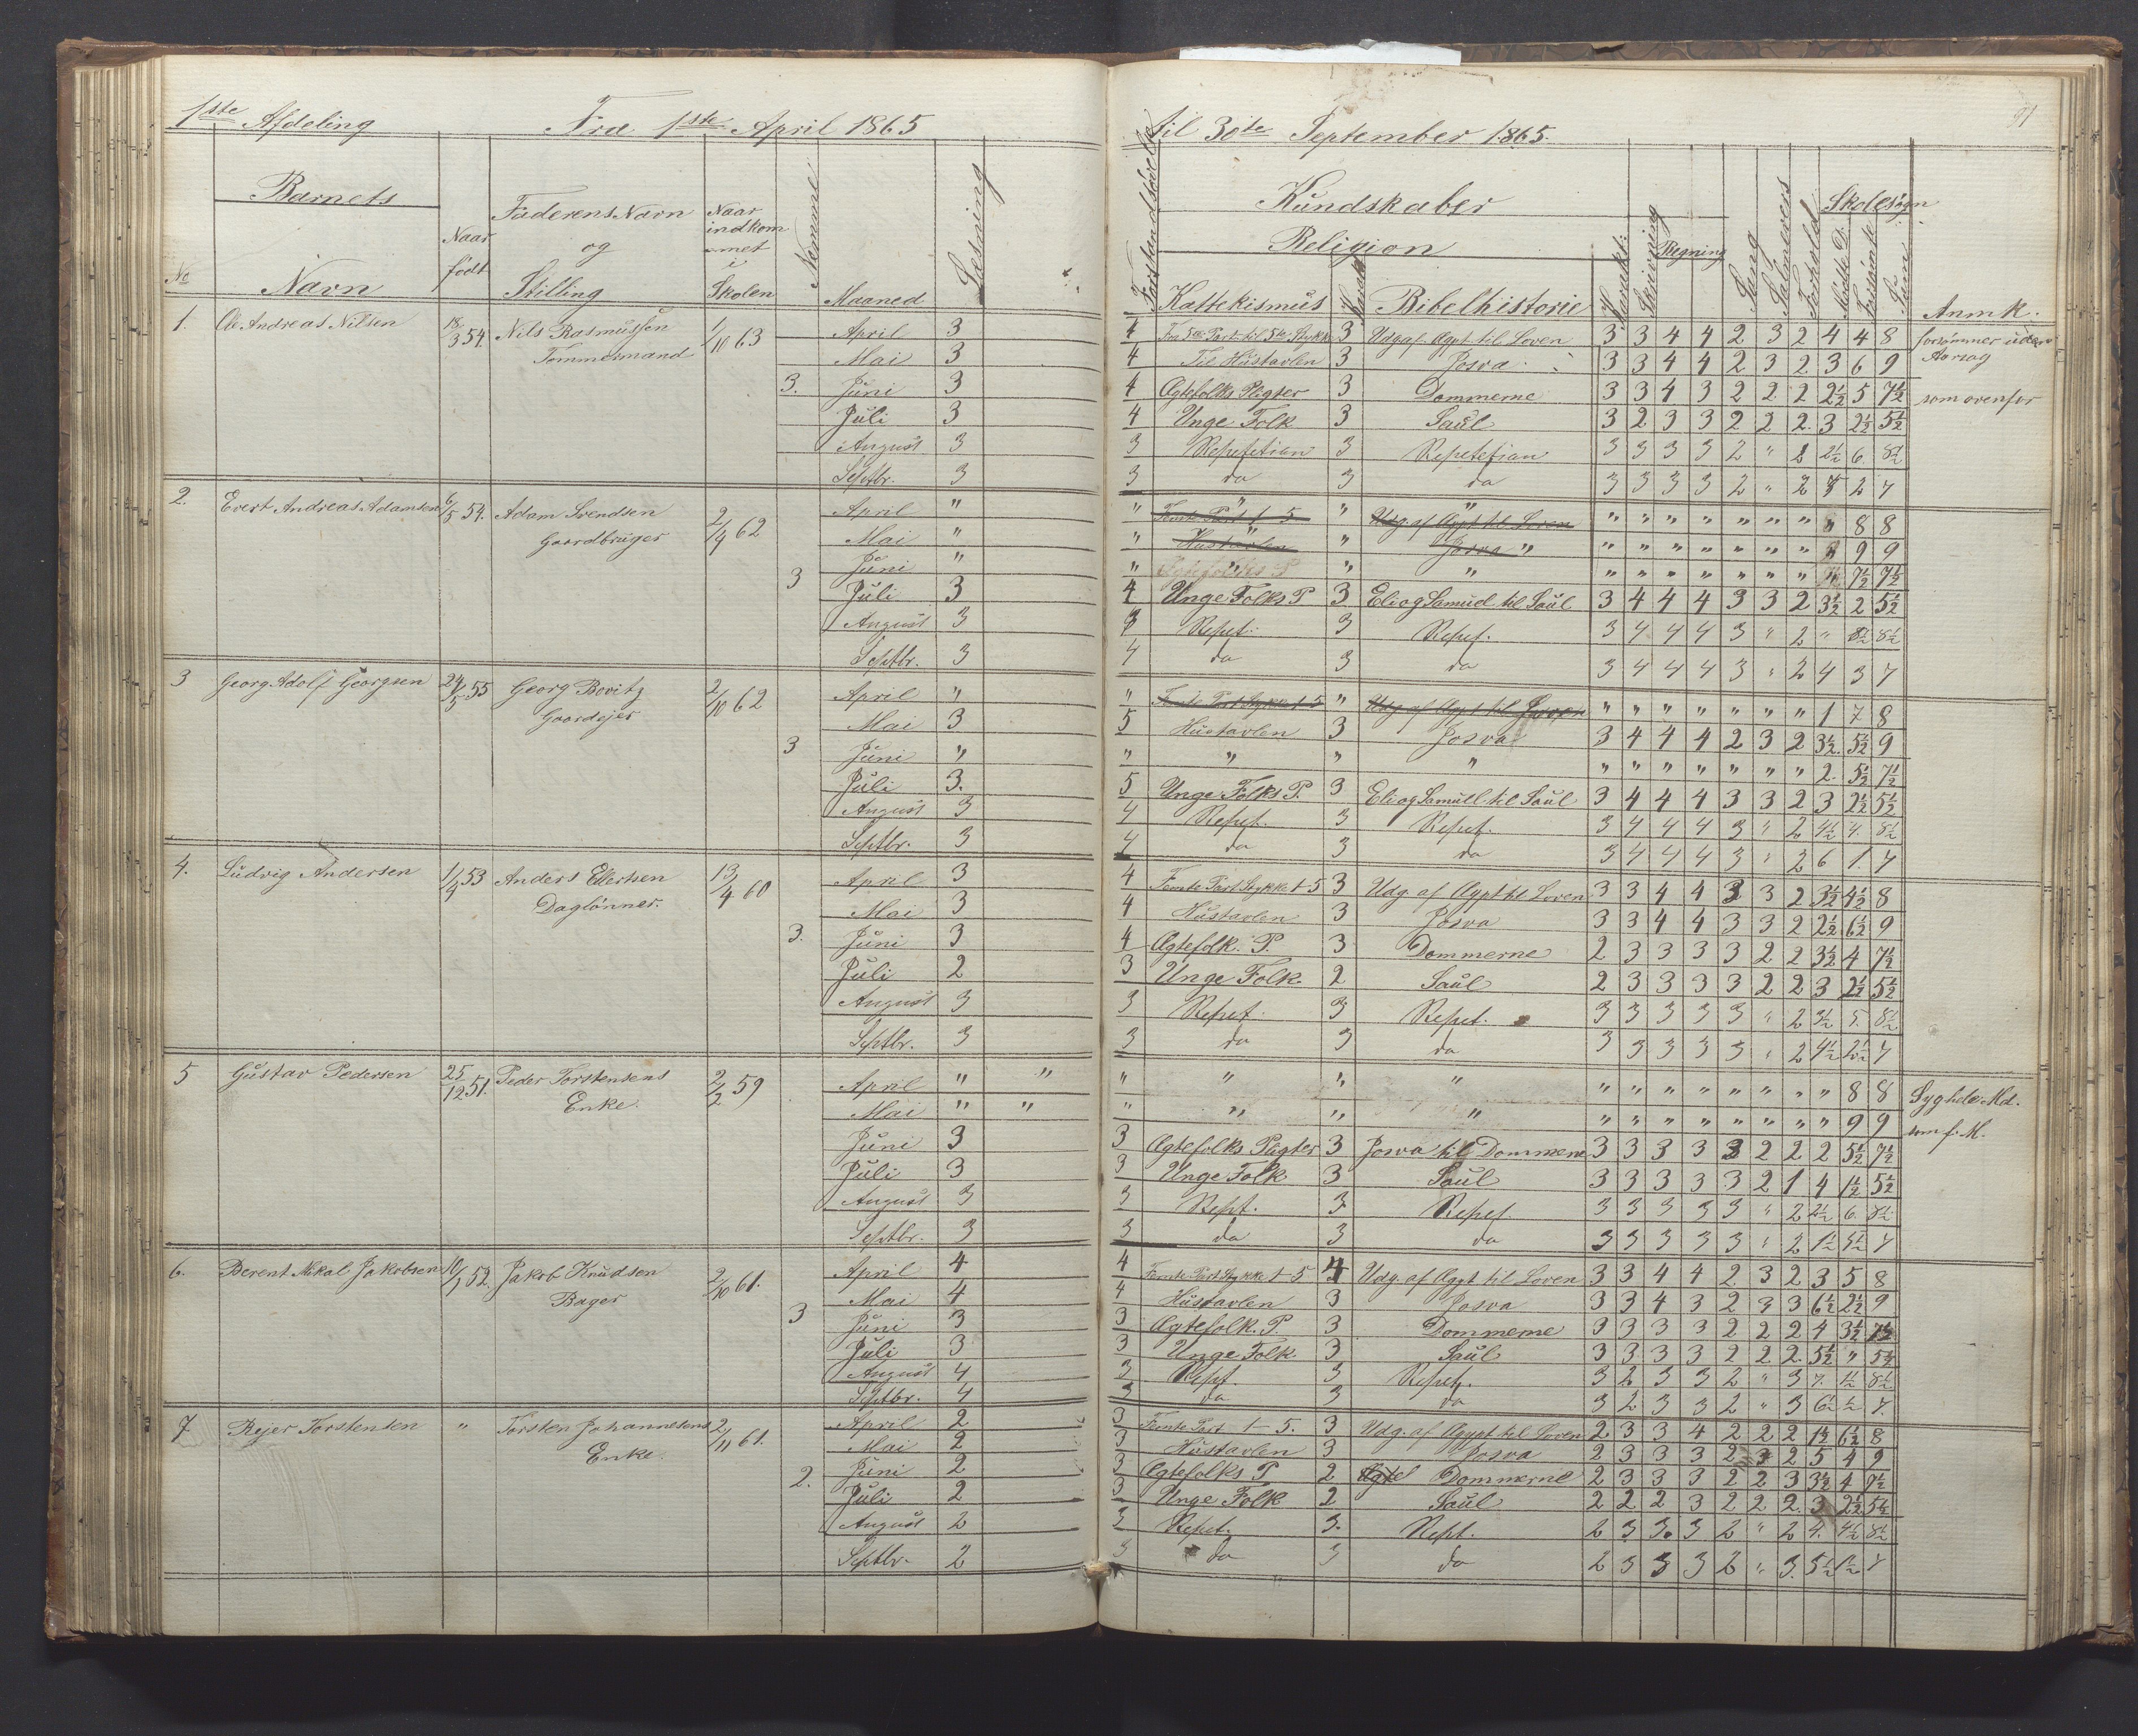 1ste Afdeling Fra 1ste April 1865
Barnets
No Navn Naar født Faderens Navn og Stilling Naar indkommet i Skolen Nemme Maaned Læsning
1. Ole Andreas Nilsen 18/3 54. Nils Rasmussen 1/10 63 April 3
Tømmermand Mai 3
3. Juni 3
Juli 3
August 3
Septbr. 3
2. Evert Andreas Adamsen 6/5 54. Adam Svendsen 2/4 62 April "
Gaardbruger Mai "
Juni "
3 Juli 3
August 3
Septbr. 3
3 Georg Adolf Georgsen 24/5 55 Georg Bovitz 2/10 62 April "
Gaardejer Mai 3
3 Juni "
Juli 3.
August 3
Septbr. 3
4. Ludvig Andersen 1/9 53 Anders Ellertsen 13/4 60 April 3
Daglönner. Mai 3
3. Juni 3
Juli 2
August 3
Septbr. 3
5 Gustav Pedersen 25/12 51. Peder Torstensens 2/2 59 April " "
Enke. Mai " "
Juni 3
Juli 3
August 3
Septbr. 3
6. Berent Mikal Jakobsen 10/1 52. Jakob Knudsen 2/10 61. April 4
Bager Mai 4
3 Juni 3
Juli 3
August 4
Septbr. 4
7 Rejer Torstensen " Torsten Johannesens 2/11 61. April 2
Enke. Mai 2
2. Juni 2
Juli 2
August 2
Septbr. 2
til 30te September 1865. 91
Kundskaber
Religion Regning Skolesøgn
Forstandsøvelse Kattekismus Bibelhistorie Skrivning Sang Salmevers Forhold Mødte D. Forsømte Anmk.
4 Fra 5te Part til 5te Stykke 3 Udg. af Ægpt til Loven 3 3 4 4 2 3 2 4 4 8 forsømmer uden
4 Til Hustavlen 3 Josva 3 3 4 4 2 3 2 3 6 9 Aarsag
4 Ægtefolks Pligter 3 Dommerne 3 3 4 3 2 2 2 2½ 5 7½ som ovenfor
4 Unge Folk 3 Saul 3 2 3 3 2 2 2. 3 2½ 5½
3 Repetetian 3 Repetetian 3 3 3 3 2 " 2 2½ 6. 8½
3 da 3 da 3 3 3 3 2 " 2 5 2 7
" Femte Part 1-5 " Udg. af Ægpt til Loven " " " " " " " " 8 8
" Hustavlen " Josva " " " " " " " " " 9 9
" Ægtefolks P " " " " " " " " " " 7½ 7½
4 Unge Folks P 3 Eli og Samuel til Saul 3 4 4 4 3 3 2 3½ 2 5½
3 Repet. 3 Repet. 3 4 4 4 3 " 2 " 8½ 8½
4 da 3 da 3 4 4 4 3 " 2 4 3 7
" Femte Part Stykke 1-5 " Udg. af Ægpt til Loven " " " " " " " 1 7 8
5 Hustavlen 3 Josva 3 4 4 4 2 3 2 3½ 5½ 9
" " " " " " " " " " " 2. 5½ 7½
5 Unge Folks P. 3 Eli og Samuel til Saul 3 4 4 4 3 3 2 3 2½ 5½
4 Repet. 3 Repet. 3 4 4 4 3 " 2 4½ 4. 8½
4 da 3 da 3 4 4 4 3 " 2 6 1. 7
4 Femte Part Stykke 1-5 3 Udg. af Ægpt til Loven 3 3 4 4 3 3 2 3½ 4½ 8
4 Hustavlen 3 Josva 3 3 4 4 3 3 2 2½ 6½ 9
4 Ægtefolk. P. 3 Dommerne 2 3 3 3 3 2 2 3½ 4 7½
3 Unge Folk. 2 Saul 2 3 3 3 3 2 2 3 2½ 5½
3 Repet. 3 Repet. 3 3 3 3 3 " 2 3½ 5. 8½
3 da 3 da 3 3 3 3 3 " 2 4½ 2½ 7
" " " " " " " " " " " " 8 8 Syg hele Md.
" " " " " " " " " " " " 9 9 som f. M.
3 Ægtefolks Pligter 3 Josva til Dommerne 3 3 3 3 3 2 2 2 5½ 7½
3 Unge Folk 3 Saul 3 3 3 3 3 2 1 4 1½ 5½
3 Rept. 3 Repet. 3 3 3 3 3 " 2 2½ 6. 8½
3 da 3 da 3 3 3 3 3 " 2 1½ 5½ 7
4 Femte Part Stykke 1-5 4 Udg. af Ægpt til Loven 3 3 4 4 2 3 2 3 5 8
4 Hustavlen 3 Josva 3 3 4 3 2 3 3 6½ 2½ 9
3 Ægtefolk. P. 3 Dommerne 3 3 3 3 2 2 2 4 3½ 7½
3 Unge Folk 3 Saul 3 3 3 3 2 2 2. 5½ " 5½
3 Rept. 3 Repet. 3 2 3 3 2 " 3 7. 1½ 8½
3 da 3 da 3 2 3 3 2 " 3 6½ ½ 7.
3 Femte Part 1-5. 3 Udg. af Ægypt til Loven 2 3 3 4 2 2 2 1½ 6½ 8
3 Hustavlen 3 Josva 2 3 3 3 2 3 2 5 4 9
3 Ægtefolks P 2 Dommerne 2 3 3 3 2 2 3 3½ 4 7½
3 Unge Folk 2 Saul 2 2 2 3 2 2 2. 3 2½ 5½
3 Repet. 3. Rept. 2 3 3. 3 2 " 2 4. 4½ 8½
3 da 3 da 2 3 3 3 2 " 3. 5½ 1½ 7